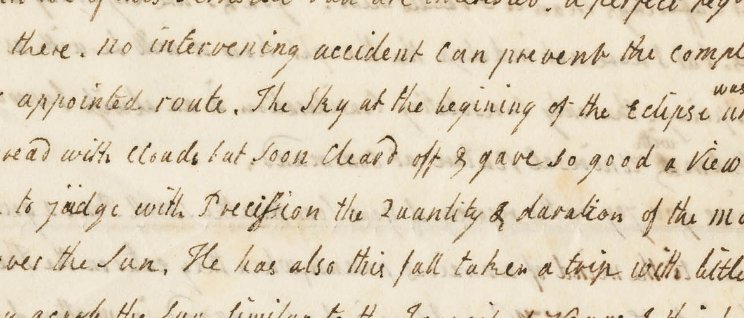 are interested. a perfect
there. no intervening accident can prevent the
appointed route. The Sky at the begining of the Eclipse was
with Clouds but soon Cleard off & gave so good a View
to judge with Precision the Quantity & duration of the
the Sun. He has also this fall taken a trip with little
the Sun similar to the